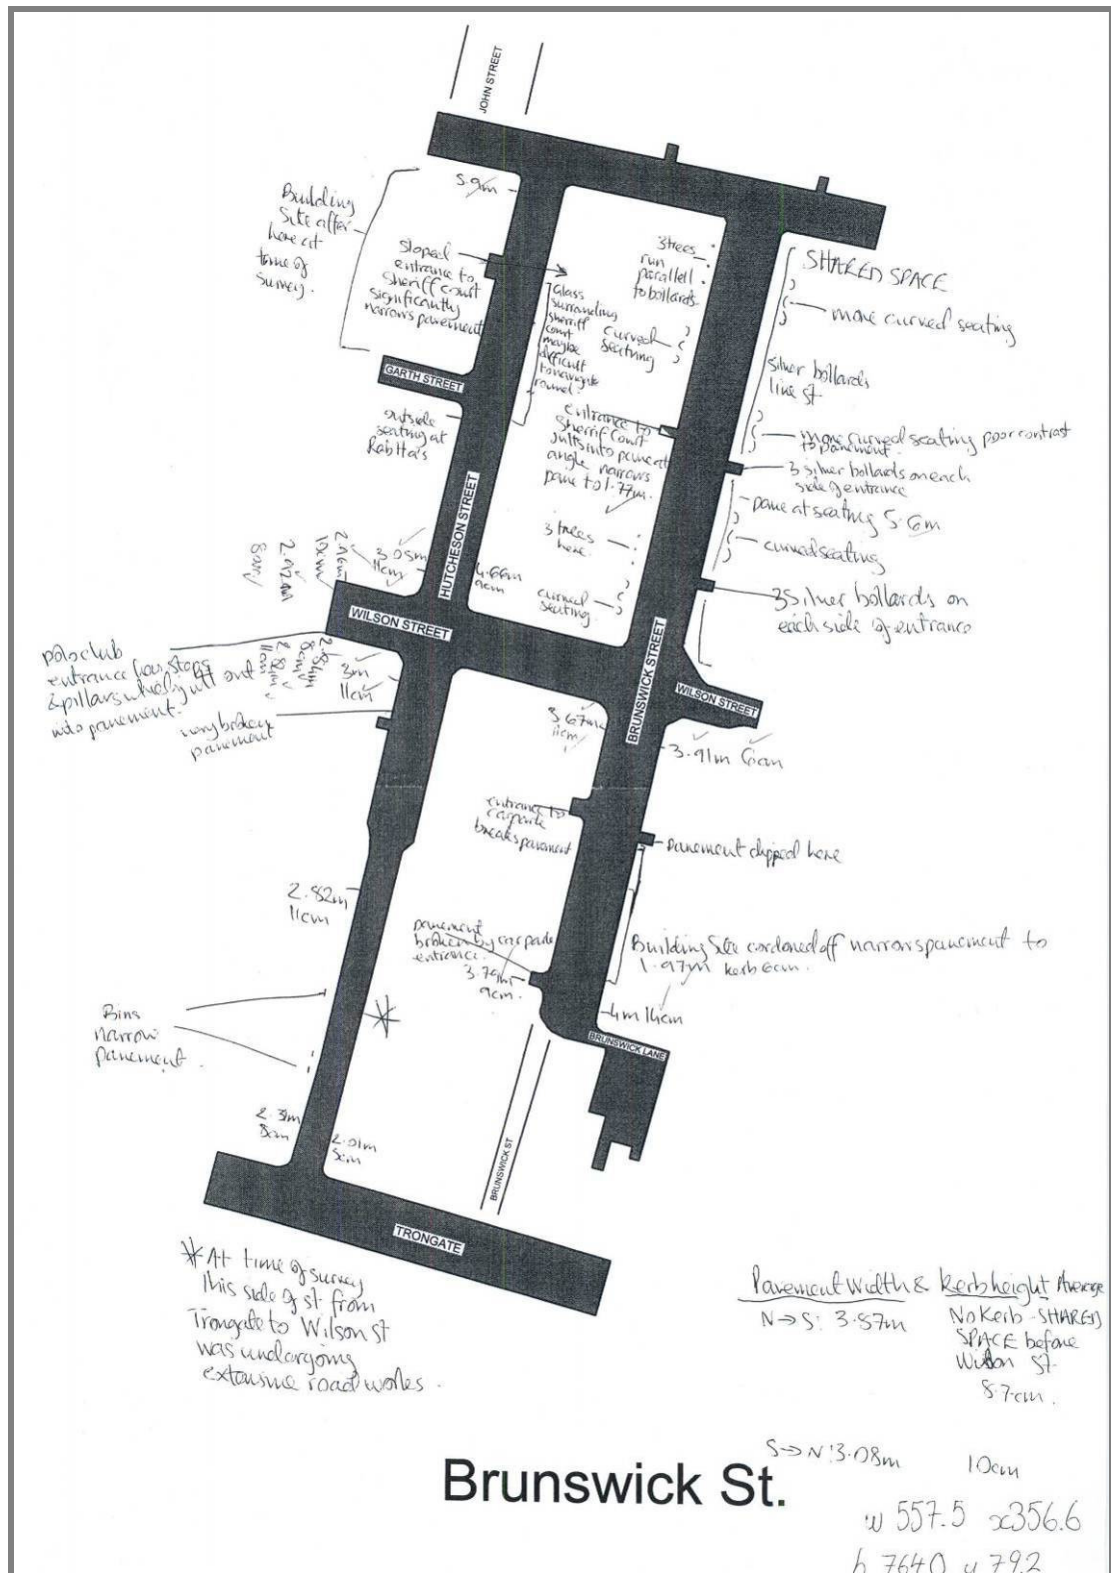 JOHN STREET
5.9m
Building
Site after
here at
time of
survey.
Sloped
entrance to
Sheriff court
significantly
narrows pavement
Glass
surrounding
sherriff
court
maybe
difficult
to navigate
round.
3 trees
run
parallell
to bollards.
curved
seating
SHARED SPACE
more curved seating
silver bollards
line st.
more curved seating poor contrast
to pavement.
3 silver bollards on each
side of entrance
pave at seating 5.6m
curved seating
3 Silver bollards on
each side of entrance
GARTH STREET
outside
seating at
Rab Ha's
entrance to
Sherrif Court
Jutts into pave at
angle narrows
pave to 1.77m.
3 trees
here.
curved
seating.
HUTCHESON STREET
3.05m
11cm
2.96m
10cm
2.92m
8cm
4.66m
9cm
WILSON STREET
BRUNSWICK STREET
WILSON STREET
polo club
entrance has steps
& pillars which jutt out
into pavement.
2.82m
11cm
3m
11cm
very broken
pavement
3.67m
11cm
3.91m 6cm
entrance to
carpark
breaks pavement
pavement dipped here
2.82m
11cm
pavement
broken by car park
entrance.
3.79m
9cm.
Building Site cordoned off narrows pavement to
1.97m kerb 6cm.
4m 14cm
BRUNSWICK LANE
Bins
narrow
pavement.
2.31m
8cm
2.01m
5cm
BRUNSWICK ST
TRONGATE
* At time of survey
this side of st from
Trongate to Wilson st
was undergoing
extensive road works.
Pavement Width & Kerb height Average
N→S: 3.87m
No Kerb - SHARED
SPACE before
Wilson St.
8.7cm.
S→N: 3.08m 10cm
Brunswick St.
w 557.5 x356.6
h 764.0 y 79.2